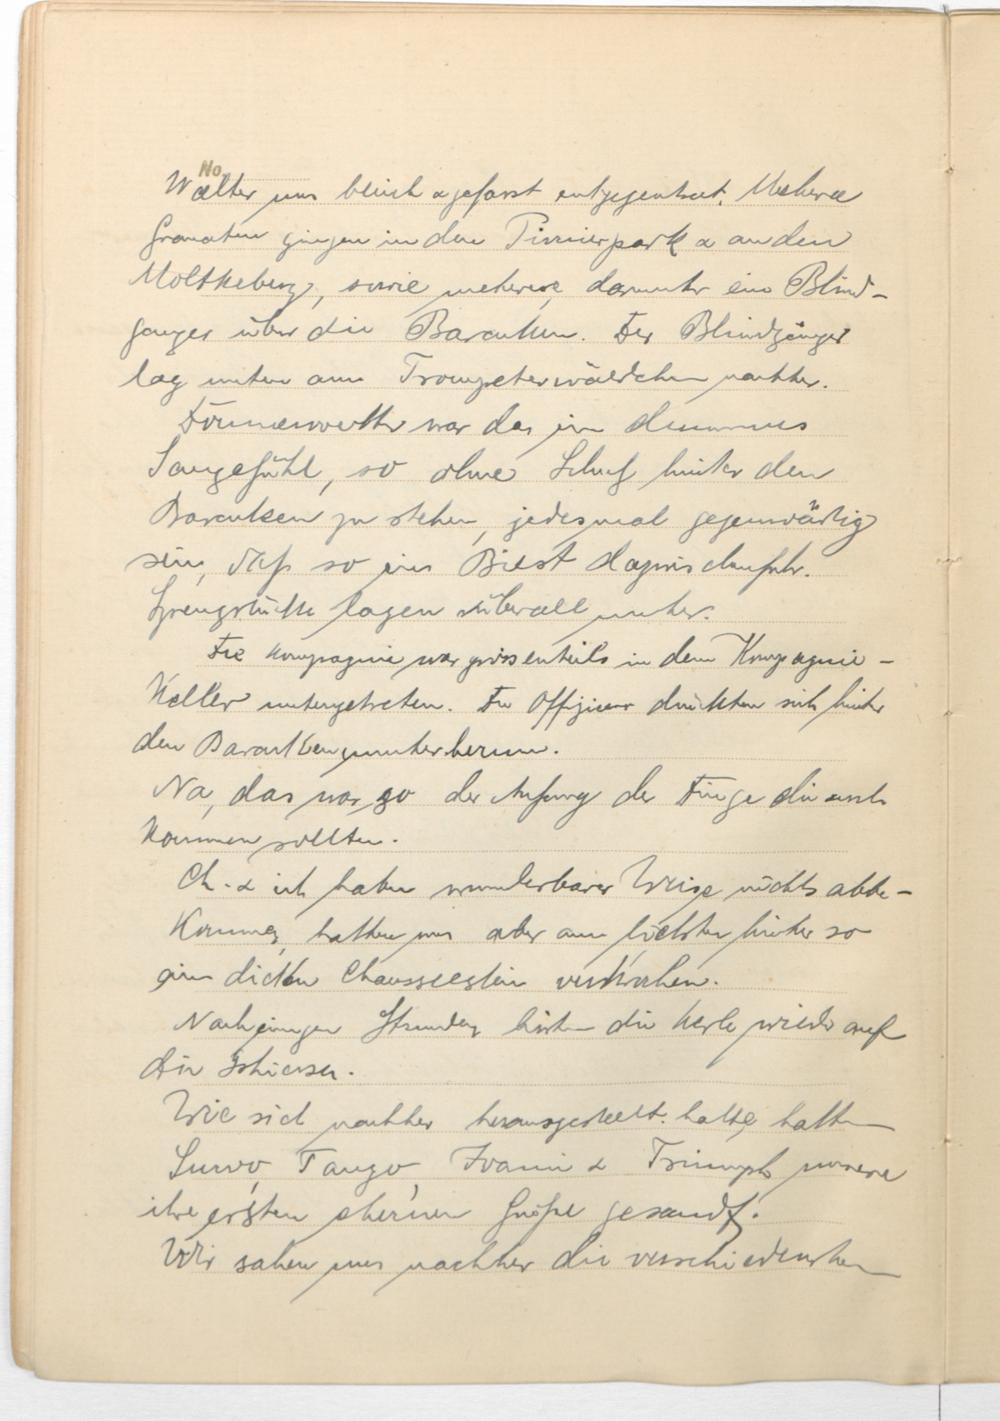 No.
Walter uns bleich & gefasst entgegentrat. Mehere
Granaten gingen in den Pionierpark & an den
Moltkeberg, sowie mehrere, darunter ein Blind-
gänger über die Baracken. Der Blindgänger
lag unten am Trompeterwäldchen nachher.
Donnerwetter war das ein dummes
Saugefühl, so ohne Schutz hinter den
Baracken zu stehen, jedesmal gegenwärtig
sein, daß so ein Biest dazwischenfuhr.
Sprengstücke lagen überall umher.
Die Kompagnie war grössenteils in dem Kompagnie-
Keller untergetreten. Die Offiziere drückten sich hinter
den Baracken munter herum.
Na, das war so der Anfang der Dinge die noch
kommen sollten.
Ch. & ich haben wunderbarer Weise nichts abbe-
kommen, hatten uns aber am hinter so
ein dicken Chausseestein verkrochen.
Nach einigen Stunden hörten die Kerle wieder auf
die
Wie sich nachher herausgestellt hatte, hatten
Tango, & Triumph unsere
ihre ersten ehernen Grüße gesandt.
Wir sahen uns nachher die verschiedensten